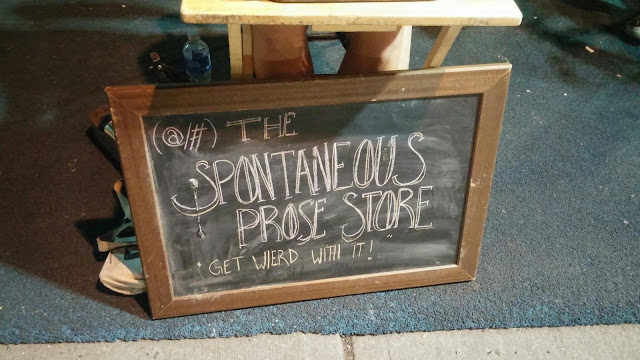 (@/#) THE
SPONTANEOUS
PROSE STORE
"GET WIERD WITH IT!"